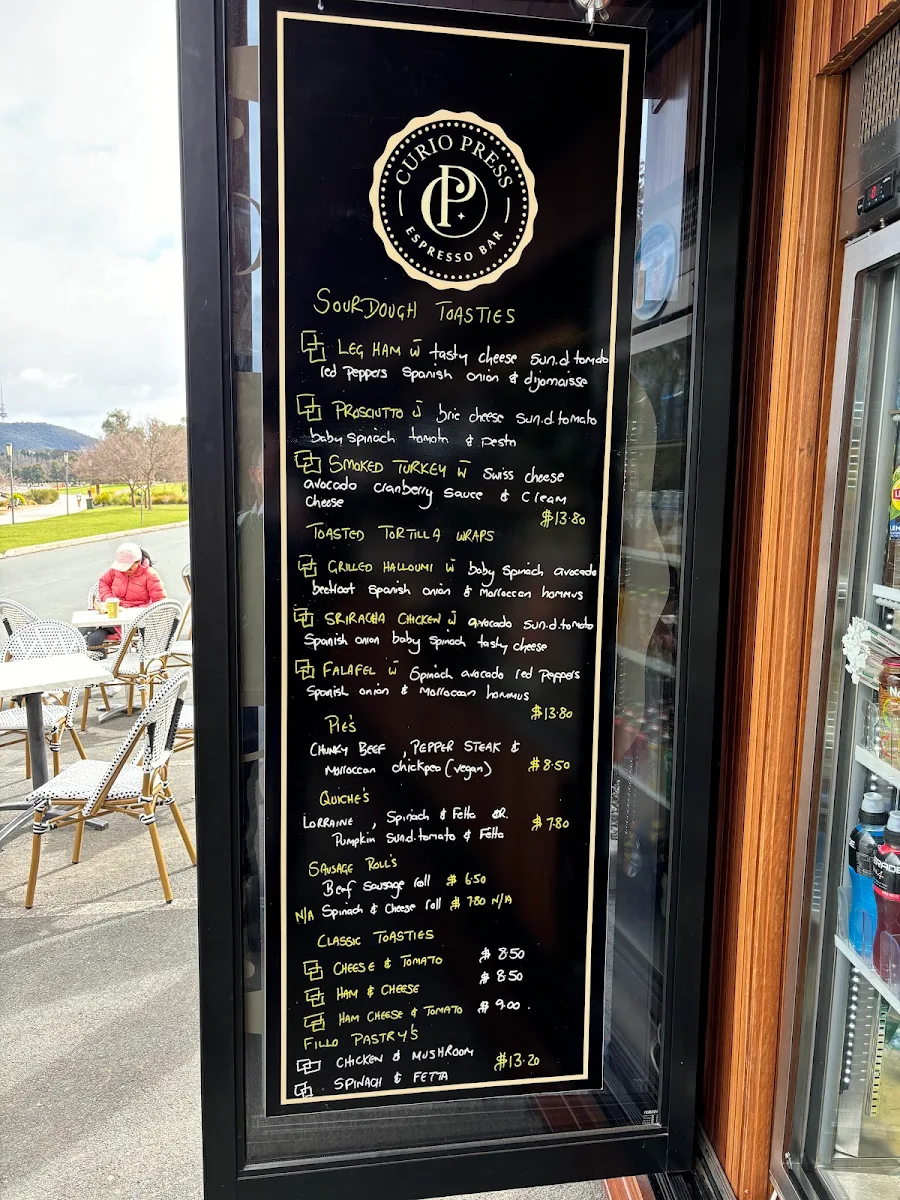 CURIO PRESS
CP
ESPRESSO BAR
SOURDOUGH TOASTIES
LEG HAM w tasty cheese sun.d.tomato
red peppers Spanish onion & dijonaisse
PROSCIUTTO w brie cheese sun.d.tomato
baby spinach tomato & pesto
SMOKED TURKEY w Swiss cheese
avocado cranberry sauce & cream
cheese
$13.80
TOASTED TORTILLA WRAPS
GRILLED HALLOUMI w baby spinach avocado
beetroot Spanish onion & Morroccan hommus
SRIRACHA CHICKEN w avocado sun.d.tomato
Spanish onion baby spinach tasty cheese
FALAFEL w Spinach avocado red peppers
Spanish onion & Morroccan hommus
$13.80
PIE'S
CHUNKY BEEF , PEPPER STEAK &
Morroccan chickpea (vegan) $8.50
QUICHE'S
LORRAINE , Spinach & Fetta OR
Pumpkin Sund.tomato & Fetta $7.80
SAUSAGE ROLL'S
Beef Sausage roll $6.50
N/A Spinach & Cheese roll $7.80 N/A
CLASSIC TOASTIES
CHEESE & TOMATO $8.50
HAM & CHEESE $8.50
HAM CHEESE & TOMATO $9.00.
FILLO PASTRY'S
CHICKEN & MUSHROOM $13.20
SPINACH & FETTA